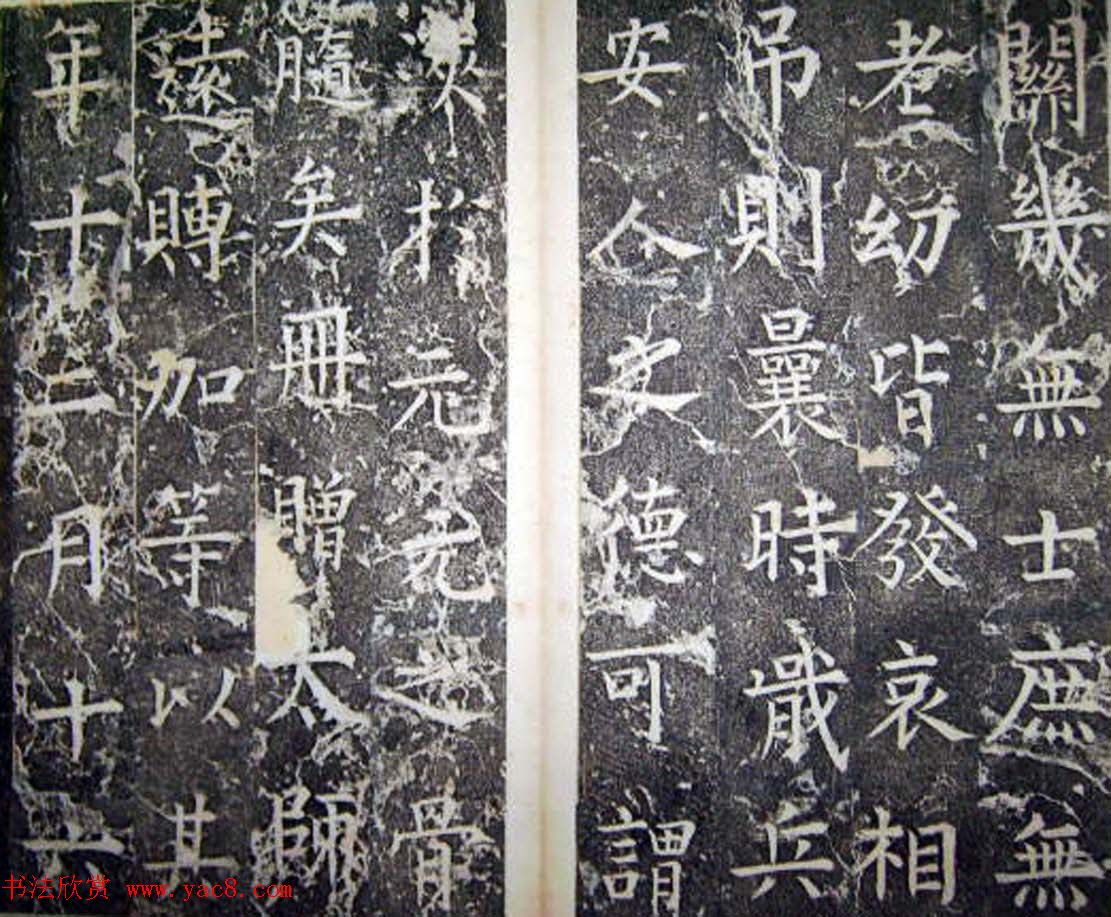 關幾無士庶無
老幼皆發哀相
吊則曩時歲兵
安人之德可謂
浹於元元之骨
膸矣冊贈太師
遠賻加等以其
年十二月十六
书法欣赏 www.yac8.com